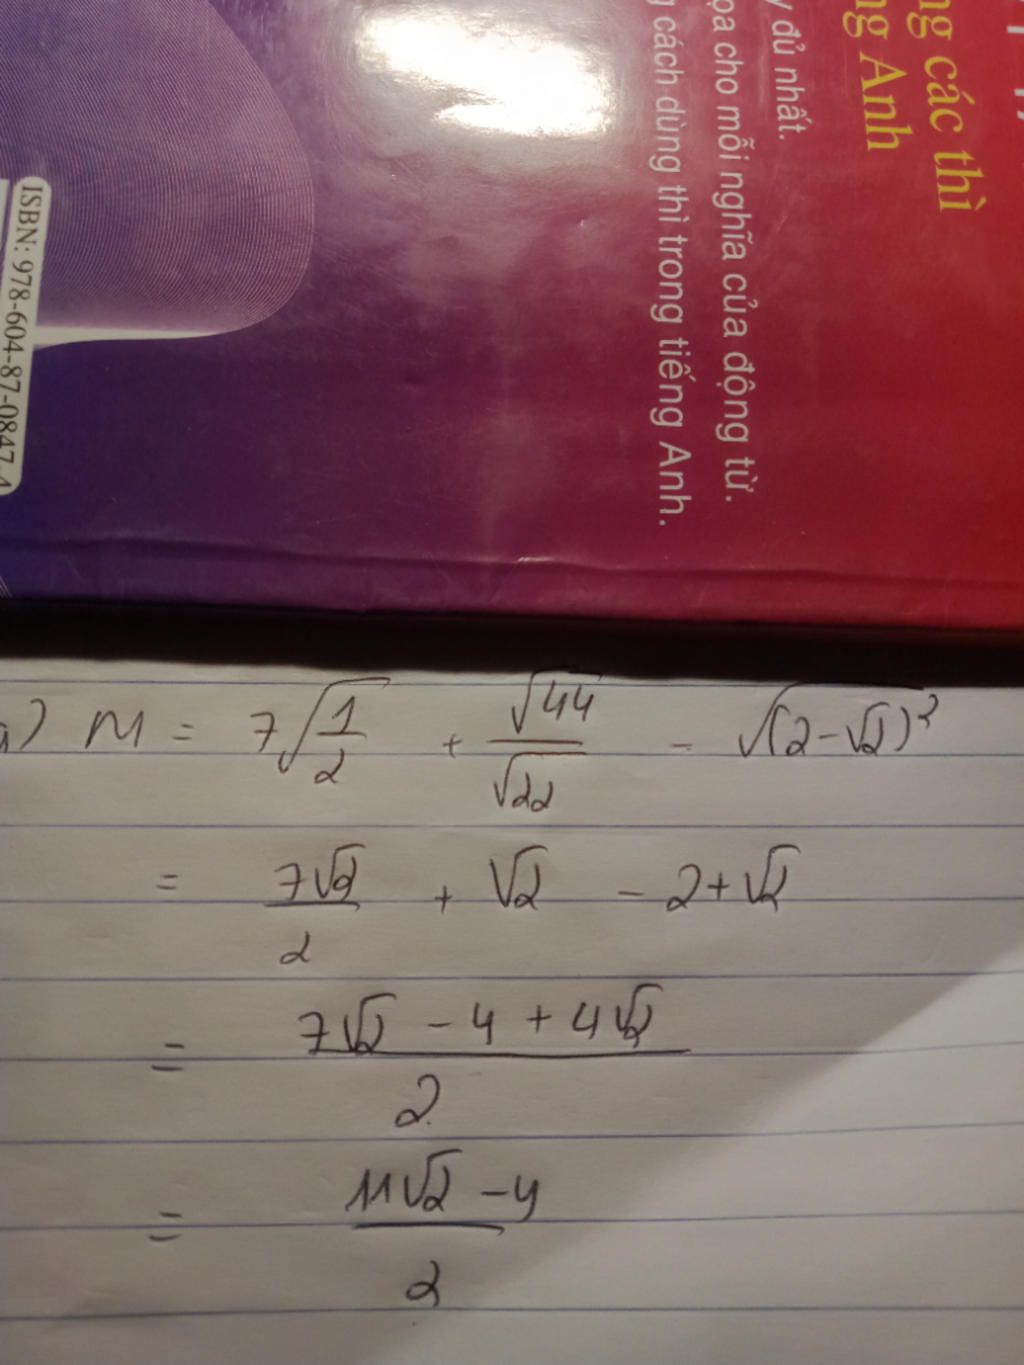 ng các thì
ng Anh
y đủ nhất.
ọa cho mỗi nghĩa của động từ.
g cách dùng thì trong tiếng Anh.
ISBN: 978-604-87-0847-4
a) M = 7√(1/2) + √44/√22 - √((2-√2)²)
= 7√2/2 + √2 - 2+√2
= (7√2 - 4 + 4√2)/2
= (11√2 - 4)/2